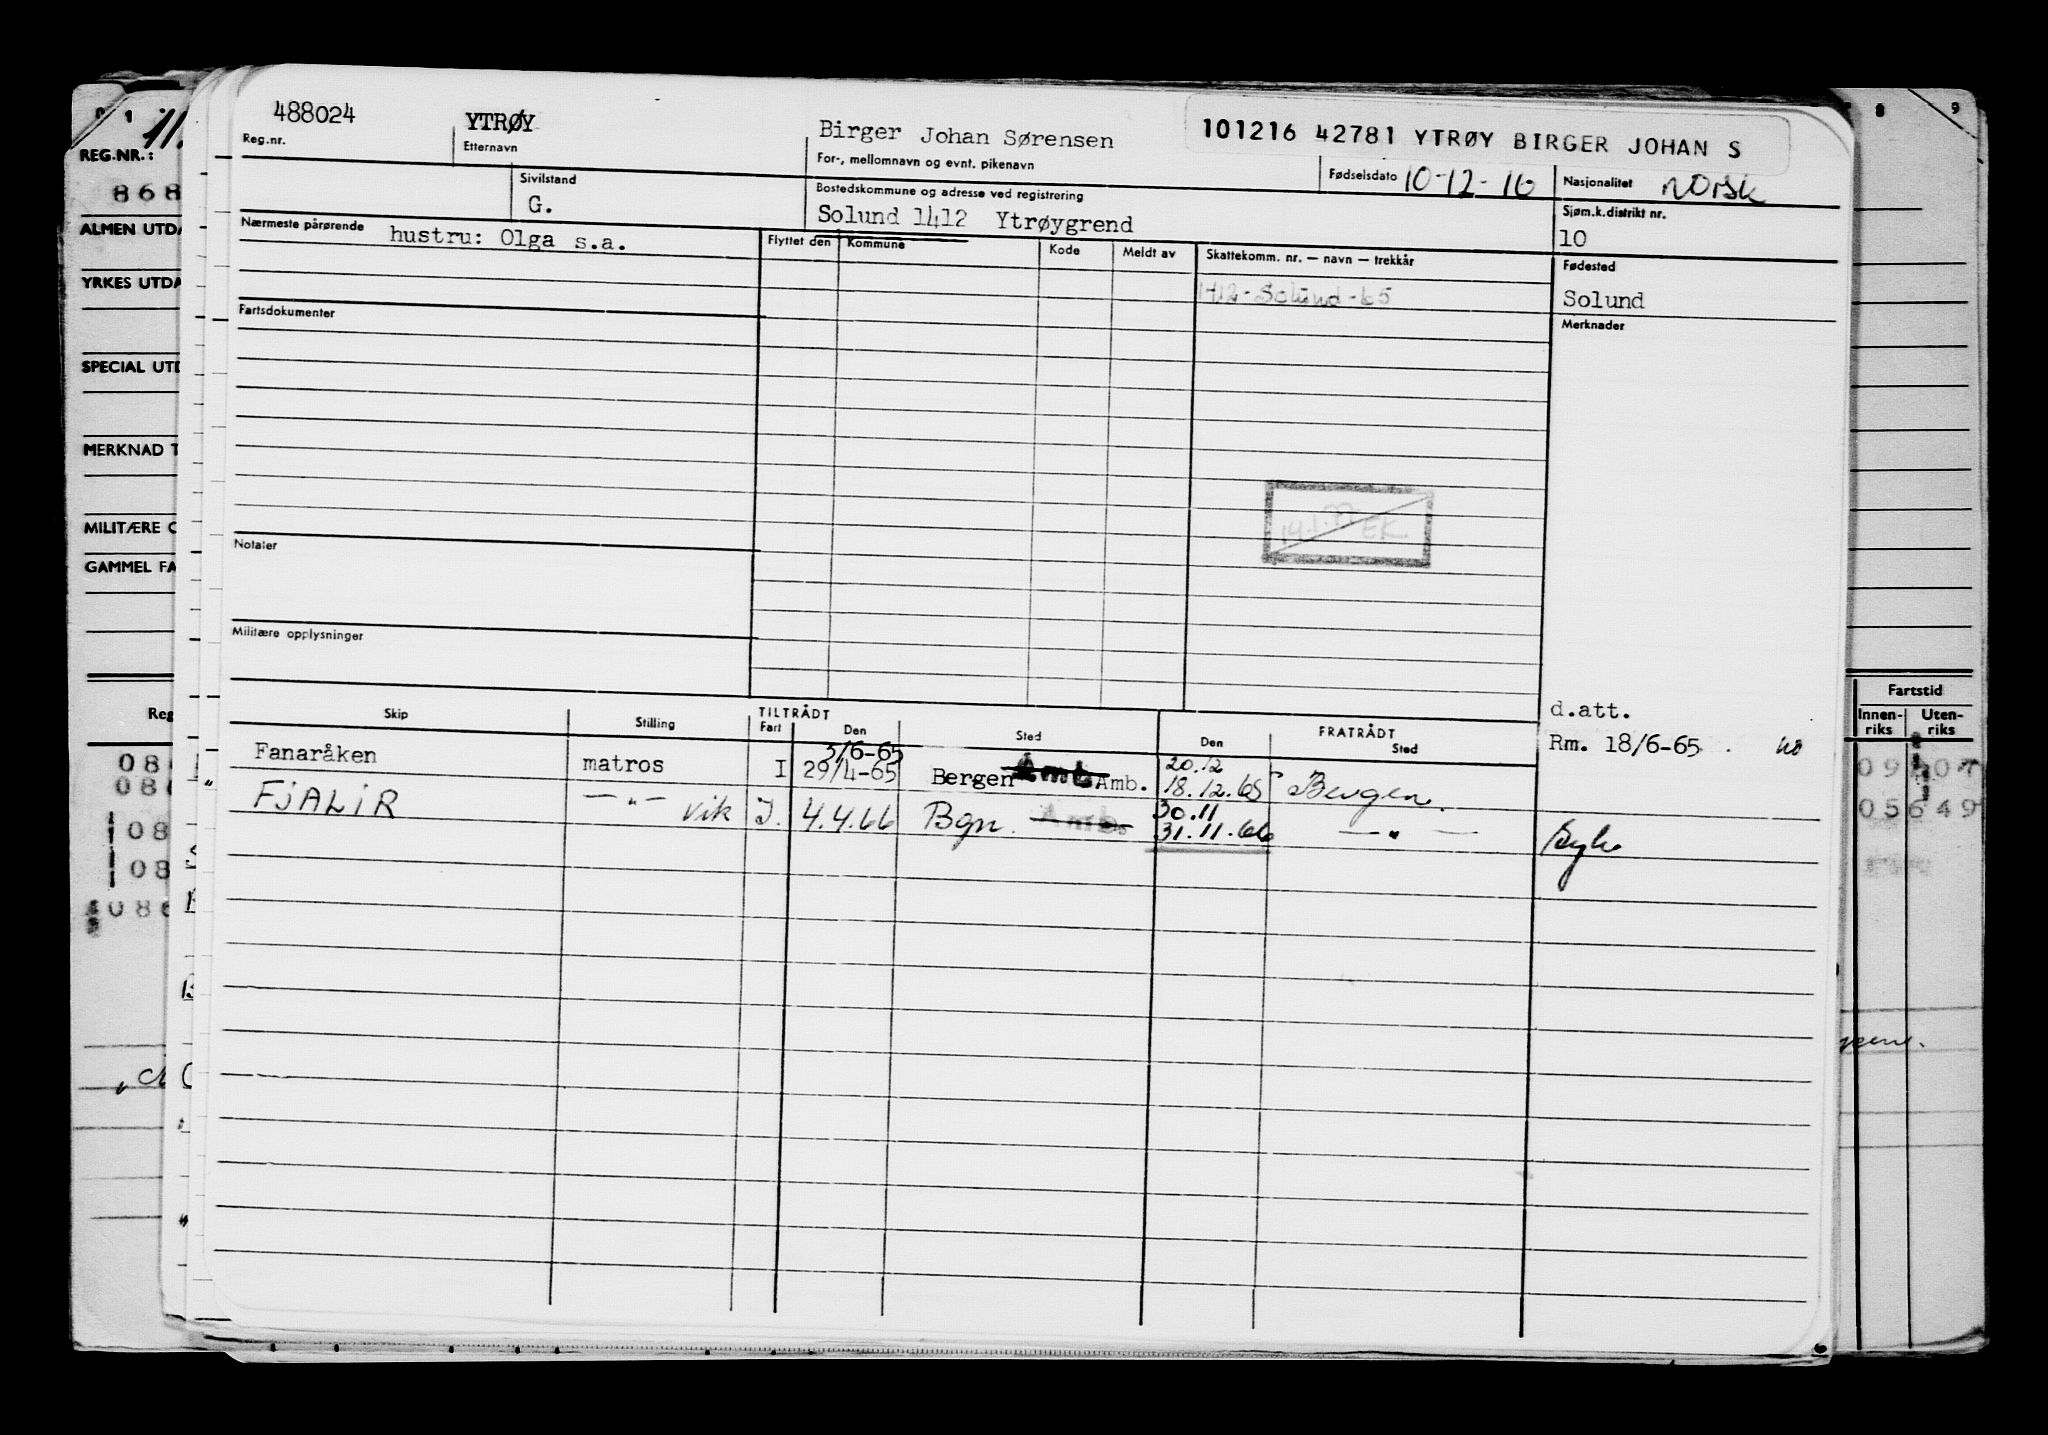 488024 YTRØY Birger Johan Sørensen 101216 42781 YTRØY BIRGER JOHAN S
Reg.nr. Etternavn For-, mellomnavn og evnt. pikenavn Fødselsdato 10-12-16 Nasjonalitet norsk
Sivilstand Bostedskommune og adresse ved registrering Sjøm.k.distrikt nr.
G. Solund 1412 Ytrøygrend 10
Nærmeste pårørende hustru: Olga s.a. Flyttet den Kommune Kode Meldt av Skattekomm. nr. — navn — trekkår Fødested
1412-Solund-65 Solund
Fartsdokumenter Merknader
14.1.77 EK
Notater
Militære opplysninger
d.att.
Skip Stilling TILTRÅDT Fart Den Sted FRATRÅDT Den Sted Rm. 18/6-65
3/6-65 20.12
Fanaråken matros I 29/4-65 Bergen Amb Amb. 18.12.65 Bergen.
30.11
" FJALIR —„— vik I. 4.4.66 Bgn. Amb. 31.11.66 —„—
REG.NR.:
868
ALMEN UTDA
YRKES UTDA
SPECIAL UTD
MERKNAD T
MILITÆRE O
GAMMEL FA
Reg
08
08
08
08
086
8 9
Fartstid
Innen-riks Uten-riks
05649